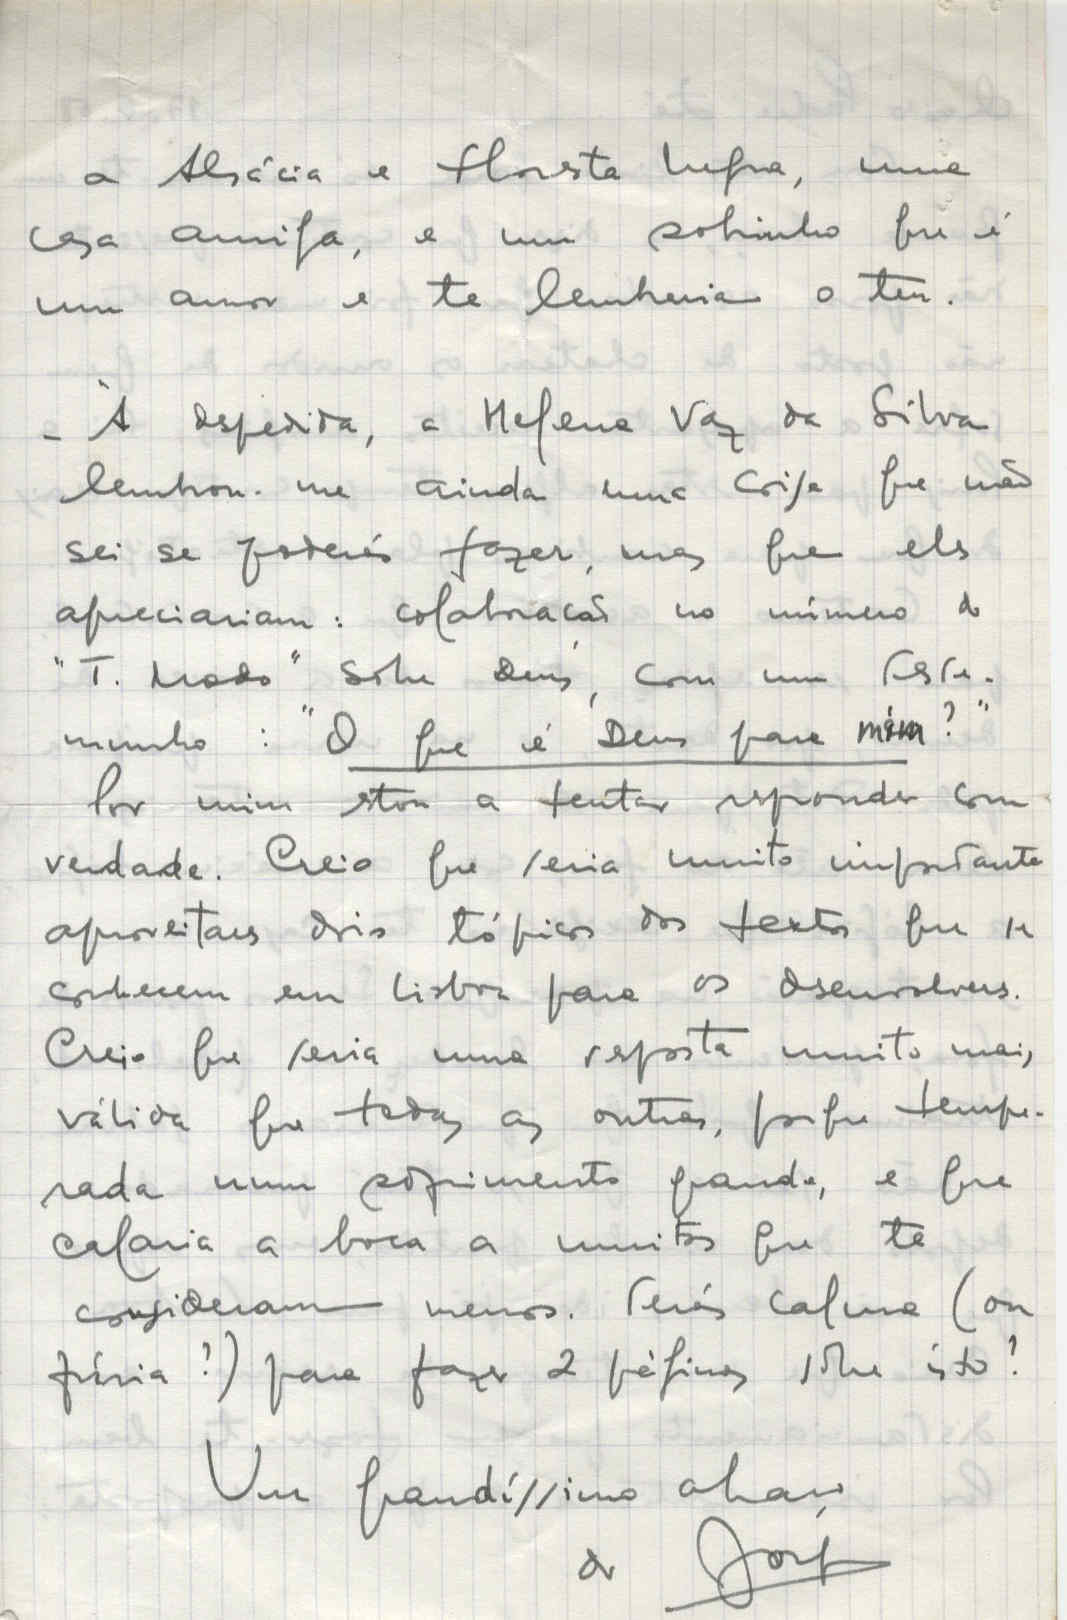 a Alsácia e Floresta Negra, uma
casa amiga, e um sobrinho que é
um amor e te lembraria o teu.
- À despedida, a Helena Vaz da Silva
lembrou-me ainda uma coisa que não
sei se poderás fazer, mas que eles
apreciariam: colaboração no número do
"T. Modo" sobre Deus, com um teste-
munho: "O que é Deus para mim?"
Por mim estou a tentar responder com
verdade. Creio que seria muito importante
aproveitares dois tópicos dos textos que se
conhecem em Lisboa para os desenvolveres.
Creio que seria uma resposta muito mais
válida que todas as outras, porque tempe-
rada num sofrimento grande, e que
calaria a boca a muitos que te
consideram menos. Terás calma (ou
fúria?) para fazer 2 páginas sobre isto?
Um grandíssimo abraço
do José